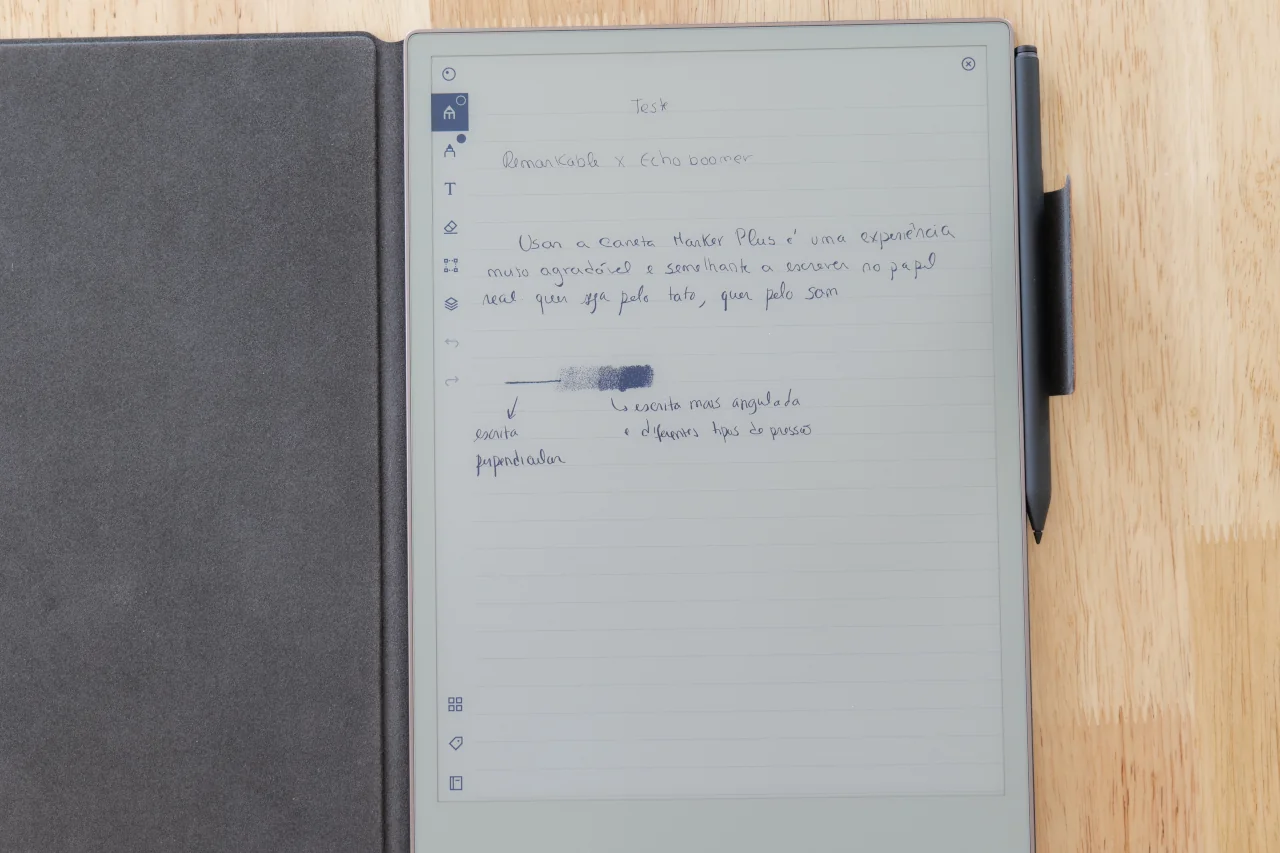 Teste
Remarkable x Echo boomer
Usar a caneta Marker Plus é uma experiência
muito agradável e semelhante a escrever no papel
real quer seja pelo tato, quer pelo som
escrita mais angulada
e diferentes tipos de pressão
escrita
perpendicular
T